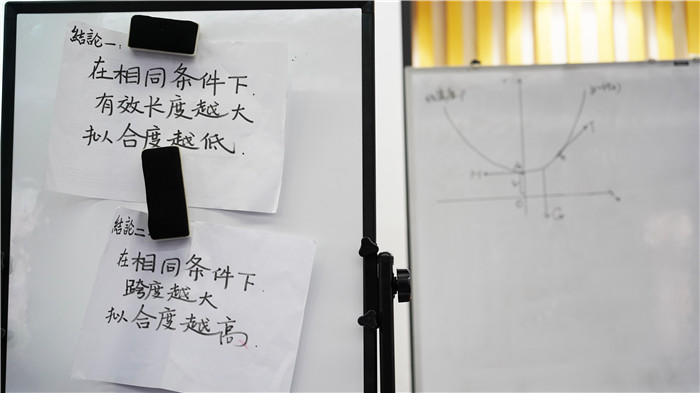 結論一:
在相同条件下.
有效长度越大
拟合度越低.
結論二:
在相同条件下.
跨度越大
拟合度越高.
T
H
G